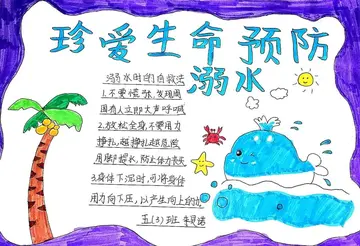 珍爱生命预防
溺水
溺水时的自救法
1.不要慌张,发现周
围有人立即大声呼喊
2.放松全身,不要用力
挣扎,越挣扎越危险
3.身体下沉时,可将身体
用力向下压,以产生向上的
五(3)班